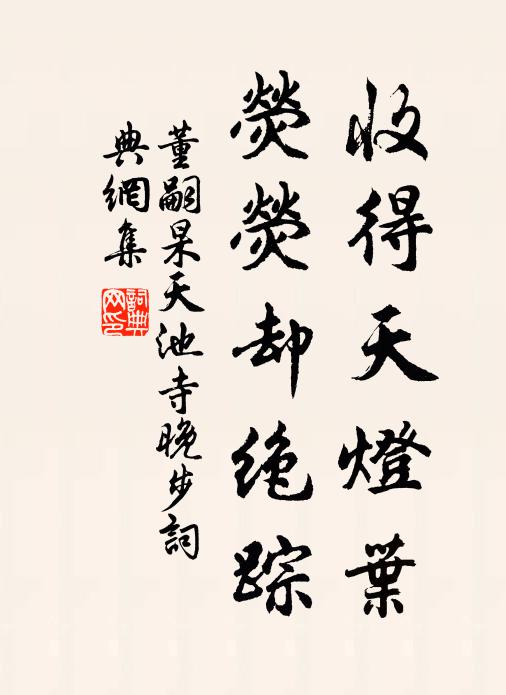 收得天燈葉
熒熒却绝踪
董嗣杲天池寺晚步詞
典網集
詞典
网印